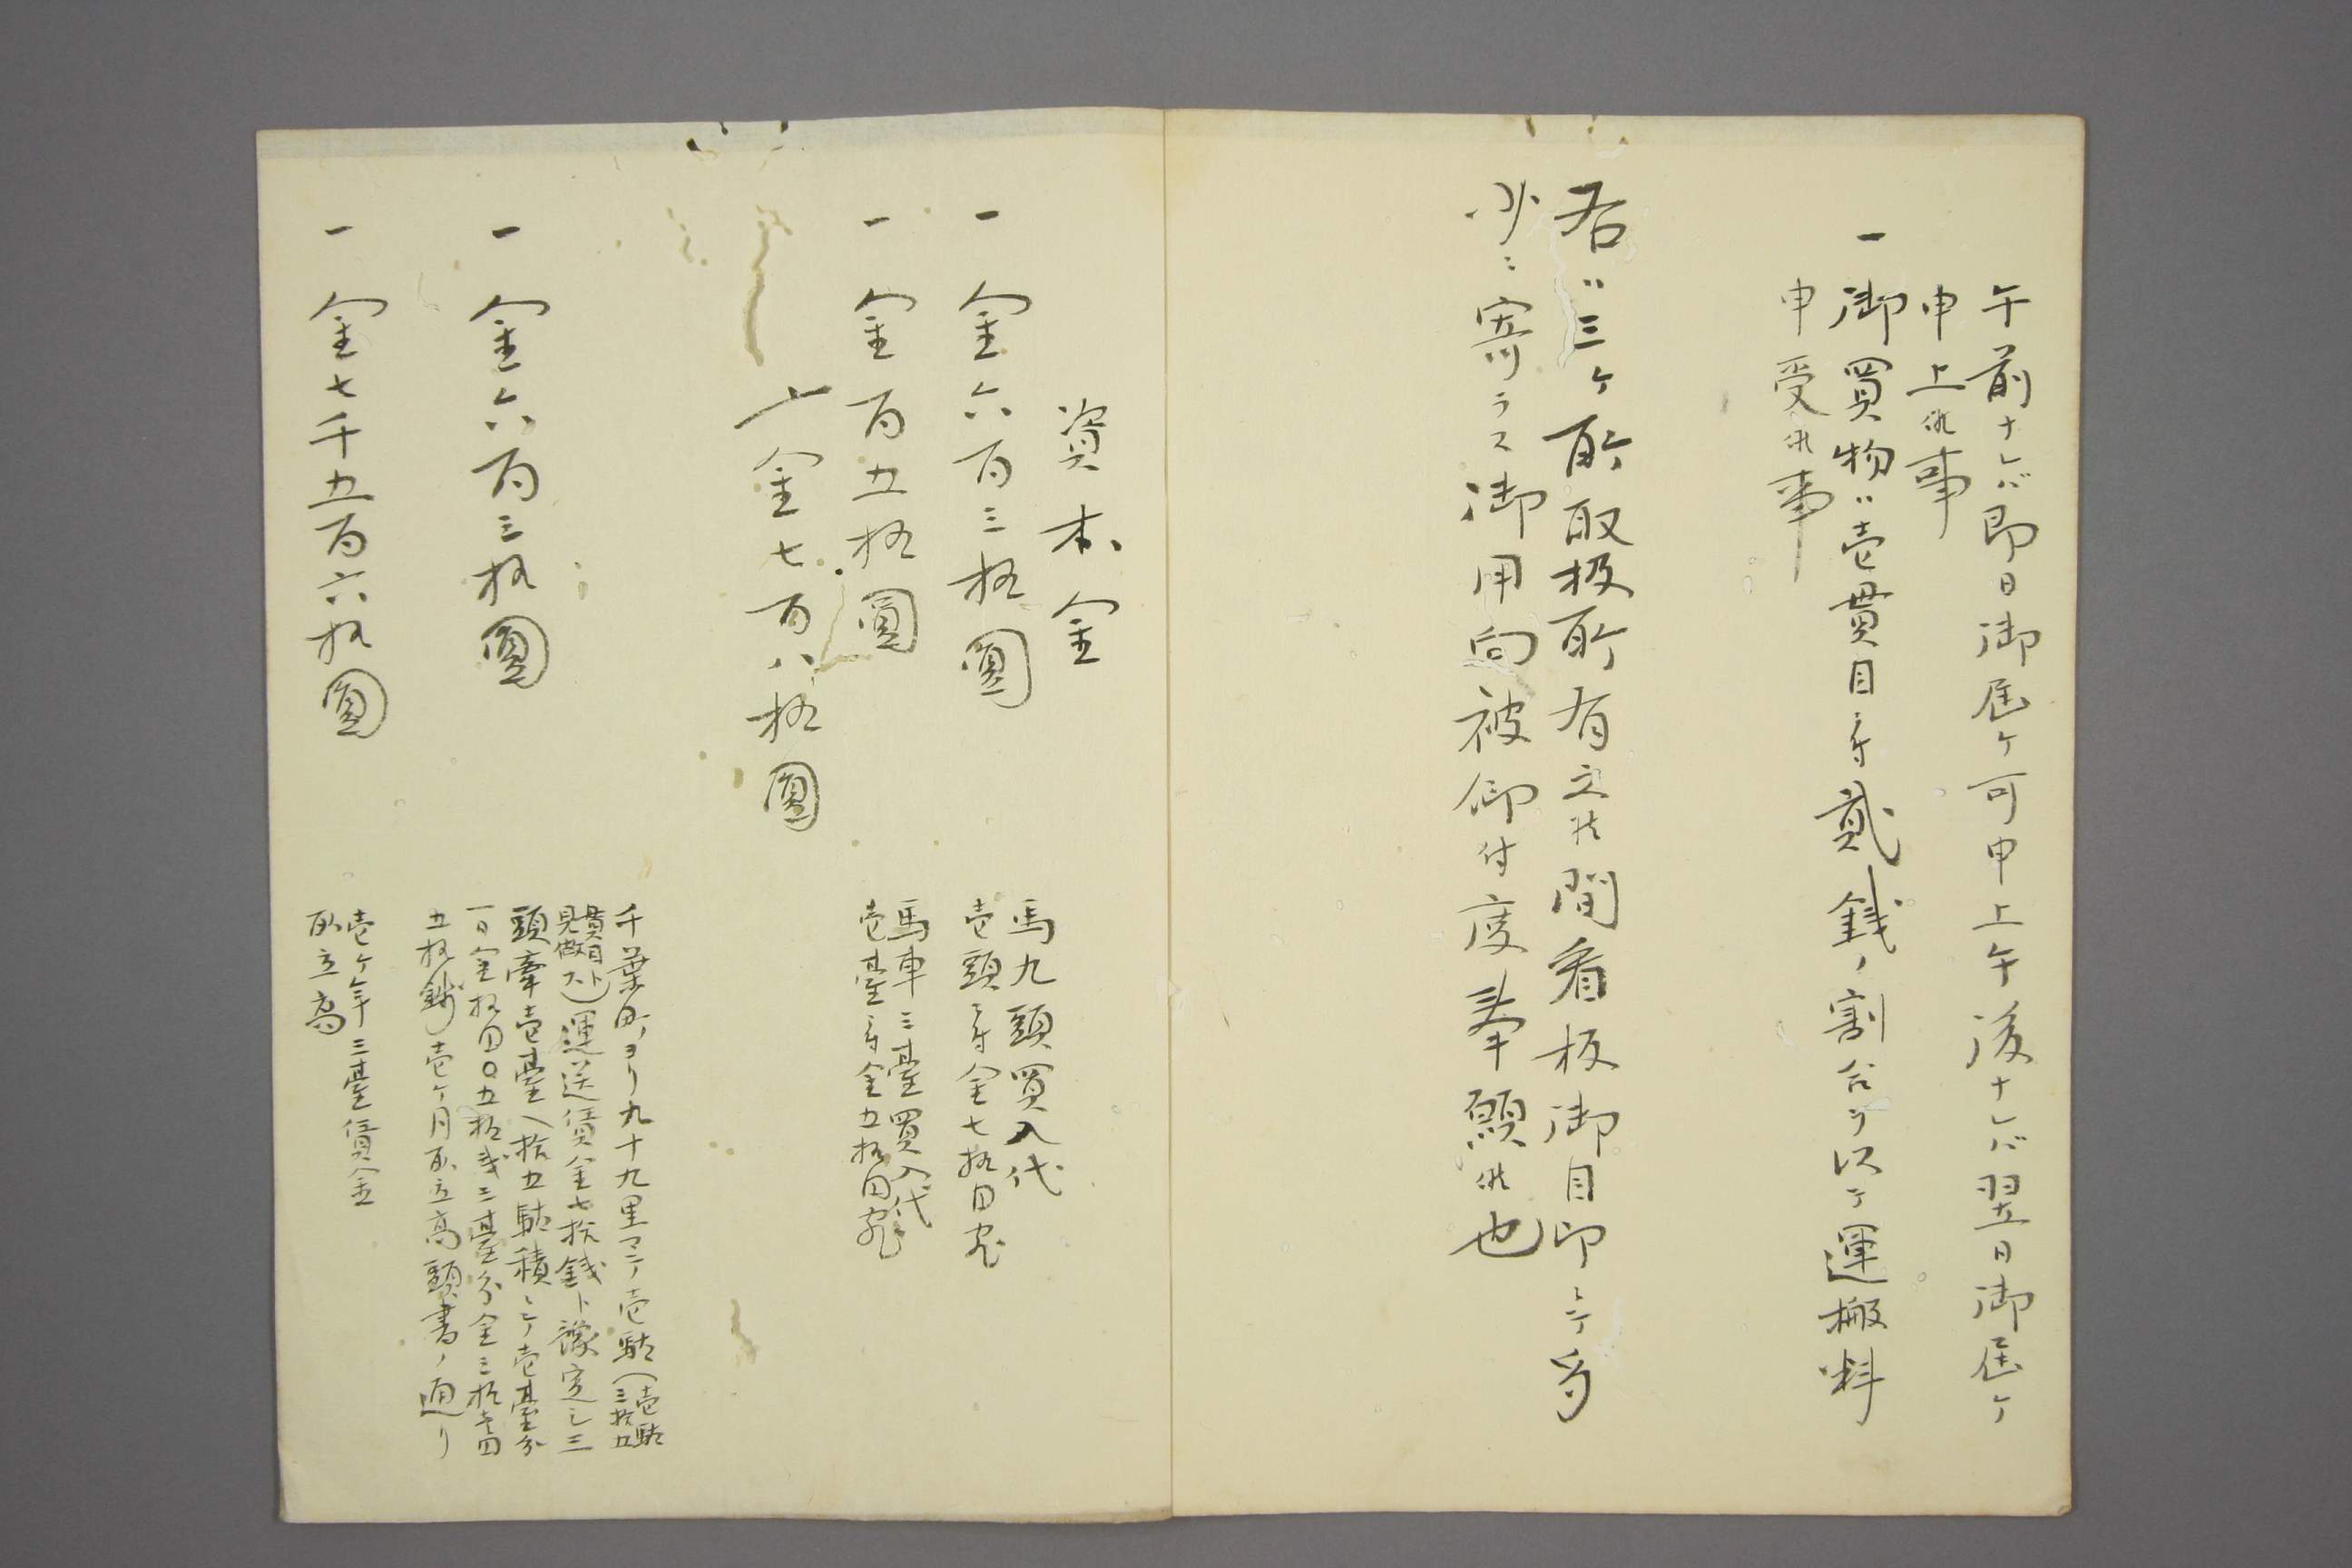 午前ナレバ即日御届ケ可申上午後ナレバ翌日御届ケ
申上候事
一御買物ハ壱貫目ニ付貳銭ノ割合ヲ以テ運搬料
申受候事
右ハ三ケ所取扱所有之候間看板御目印ニテ多
少ニ寄ラス御用向被仰付度奉願候也
資本金
一金六百三拾圓
馬九頭買入代
壱頭ニ付金七拾円宛
一金百五拾圓
馬車三臺買入代
壱臺ニ付金五拾円宛
〆金七百八拾圓
一金六百三拾圓
千葉町ヨリ九十九里マテ壱駄(壱駄
三拾五
貫目ト
見做ス)運送賃金七拾銭ト豫定シ三
頭牽壱臺ヘ拾五駄積ニテ壱臺分
一日金拾円〇五拾銭三臺分金三拾壱円
五拾銭壱ケ月取立高頭書ノ通リ
一金七千五百六拾圓
壱ケ年三臺賃金
取立高